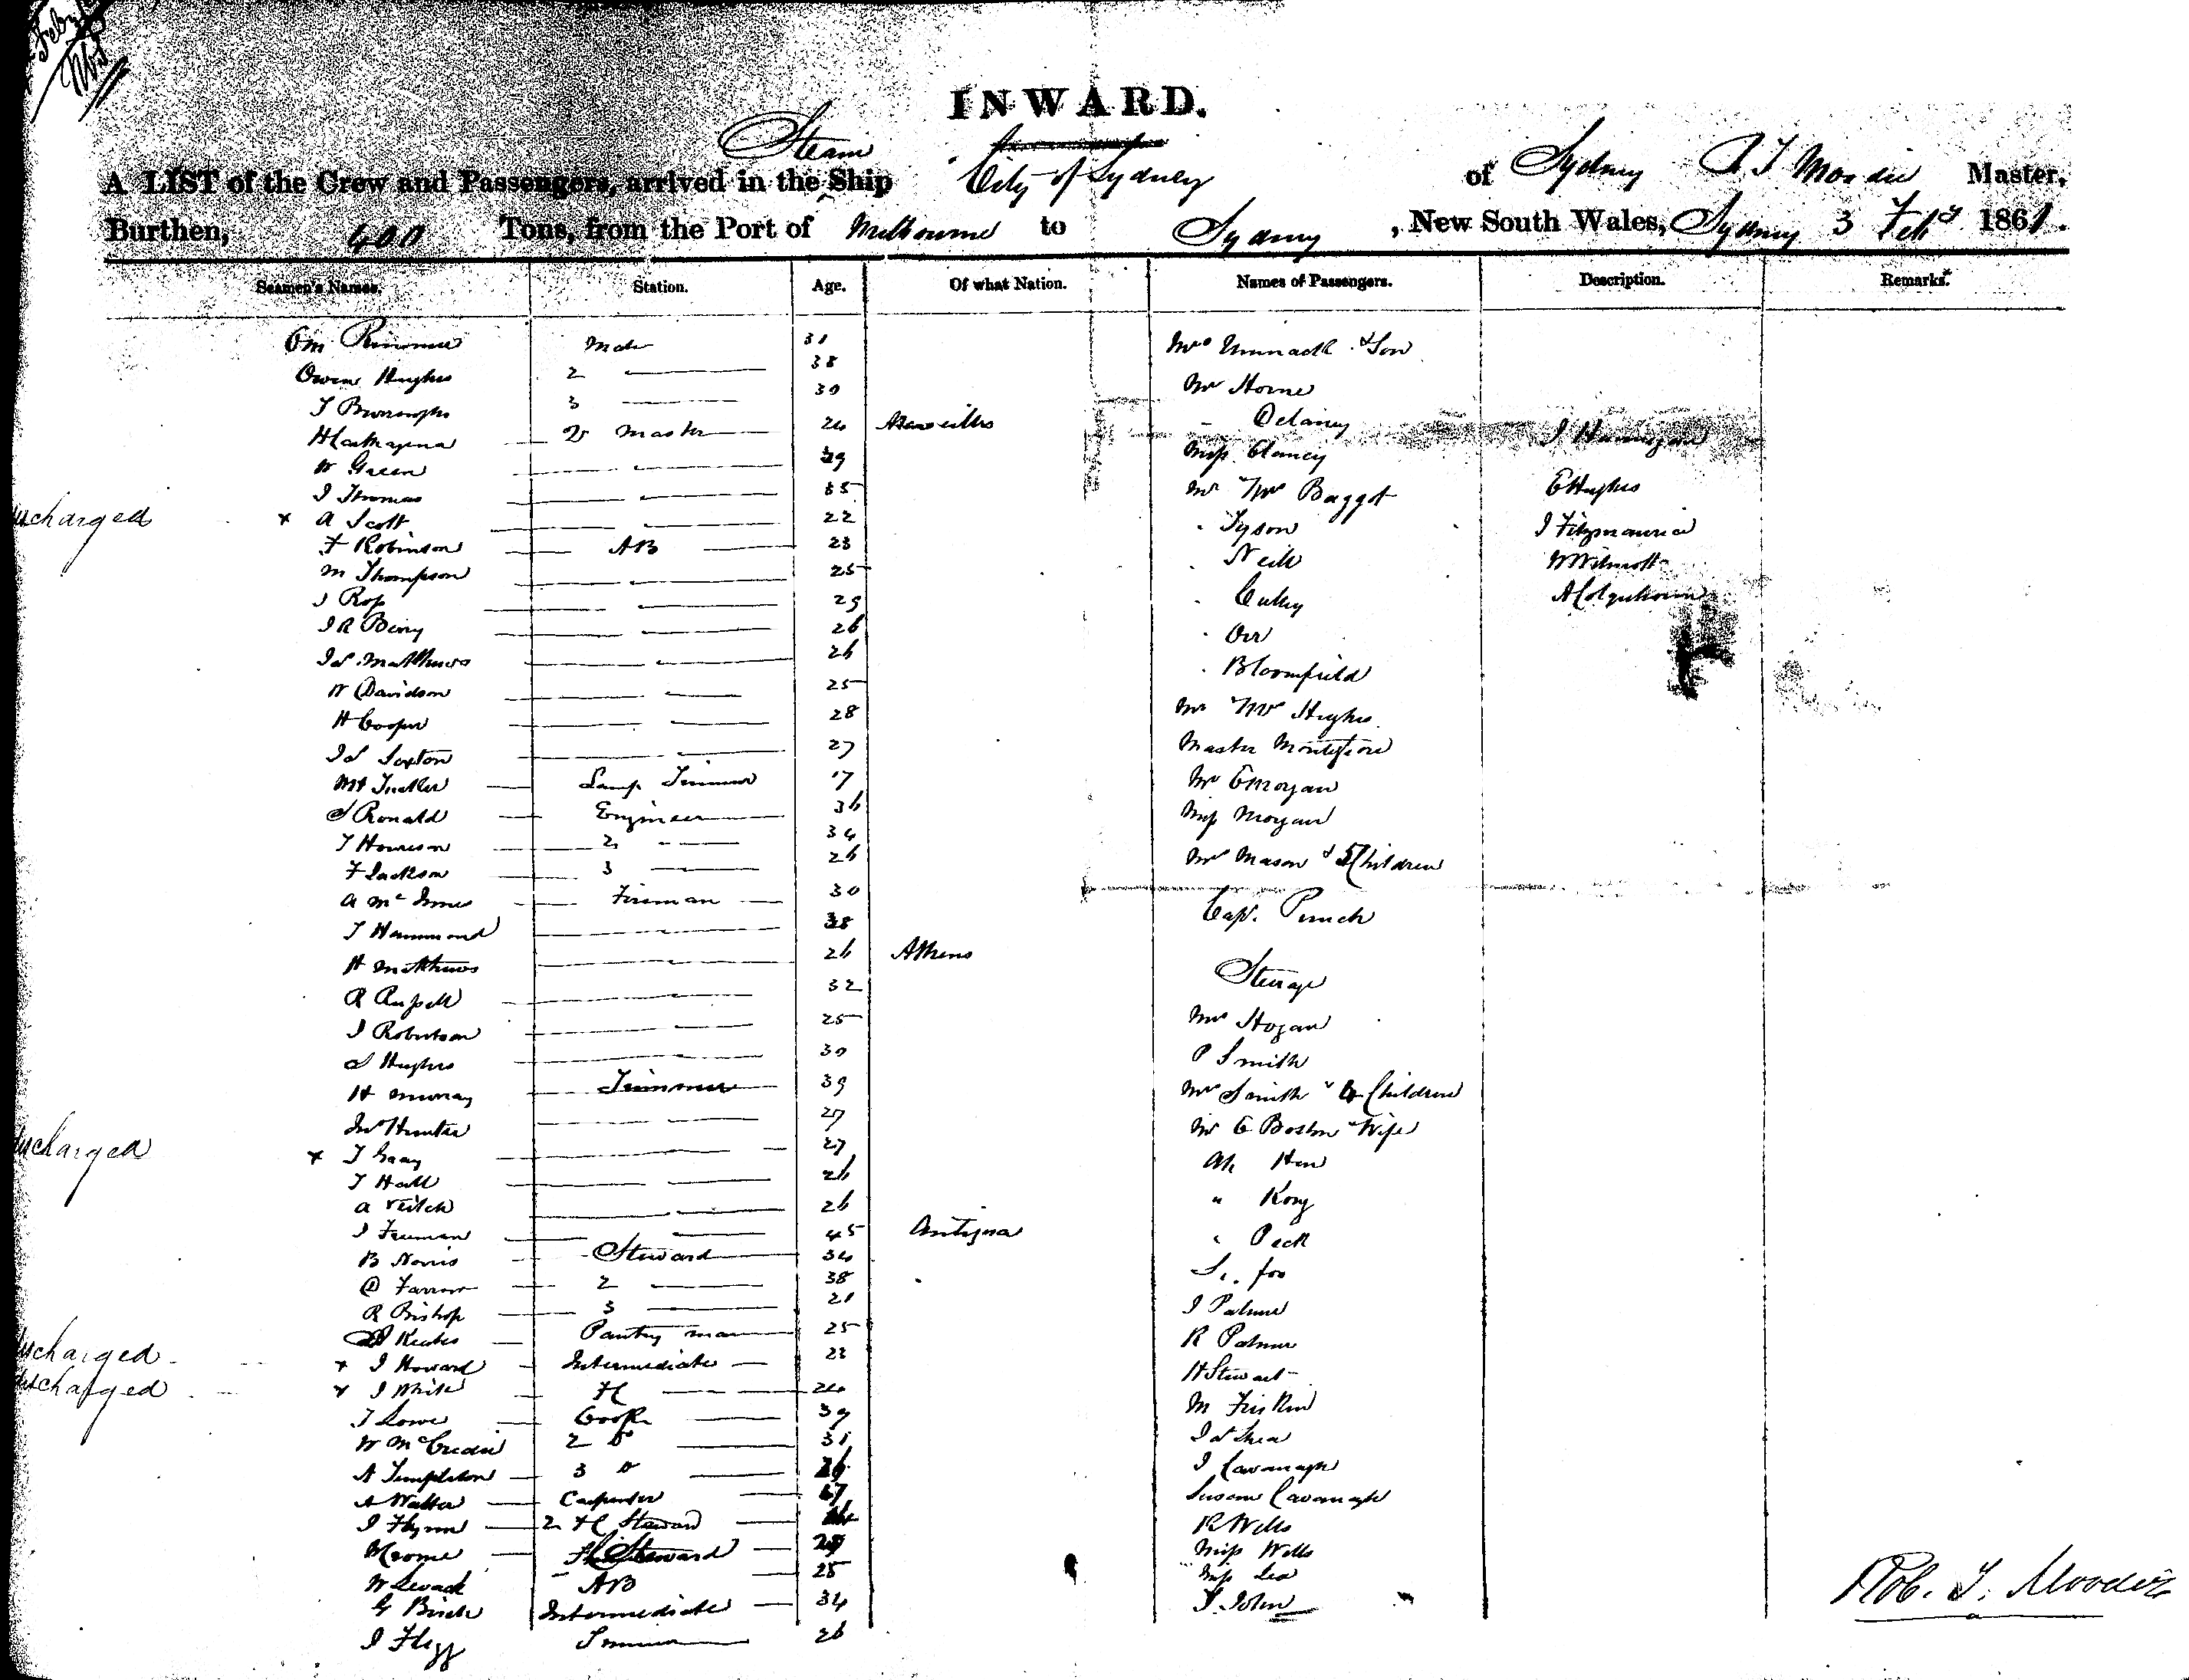 Feby
INWARD.
Steam
A LIST of the Crew and Passengers, arrived in the Ship City of Sydney of Sydney R T Moodie Master,
Burthen, 400 Tons, from the Port of Melbourne to Sydney, New South Wales, Sydney 3 Feby 1861.
Seamen's Names. Station. Age. Of what Nation. Names of Passengers. Description. Remarks.
31 & Son
Owen Hughes 2 38 Mr Horne
T Burroughs 3 30 - Delaney
2r Master 24 Marseilles J Hannigan
W Green 39 Miss Clancy
J Thomas 35 Mr Mrs Baggot E Hughes
discharged x A Scott 22 " Tyson J Fitzmaurice
F Robinson AB 23 " Neill W Wilmott
M Thompson 25 A Colquhoun
J Ross 29
J R Berry 26 " Orr
Js Matthews 26 " Bloomfield
W Davidson 25
H Cooper 28 Mr Mrs Hughes
Js Sexton 27 Master Montefiore
Lamp Trimmer 17 Mr E Morgan
J Ronald Engineer 36 Miss Morgan
T Howison 2 34
F Jackson 3 26 Mrs Mason & 5 Children
A McInnes Fireman 30
T Hammond 38 Capt. Punch
H Matthews 26 Athens
R Russell 32 Steerage
J Robertson 25 Mrs Hogan
J Hughes 30 P Smith
H Murray Trimmer 39 Mrs Smith & 4 Children
Jno Hunter 27 Mr E Boston & Wife
discharged x T Gray 27 Ah Hen
T Hall 26
A Veitch 26 " Kong
J Freeman 45 Antigua
B Norris Steward 34 " Peck
D Farrow 2 38
R Bishop 3 21 J Palmer
Keates Pantry man 25 R Palmer
discharged x J Howard Intermediate 23 H Stewart
discharged x J White FC 24
T Lowe Cook 39
W McCredie 2 Do 31 Js Shea
A Templeton 3 Do 26 J Cavanagh
A Walker Carpenter Susan Cavanagh
J Flynn 2 FC Steward R Wells
Steward Miss Wells
W Levack AB 25 Miss Lea
G Birch Intermediate 34 T. John
J Flegg Trimmer 26
Rob. T. Moodie